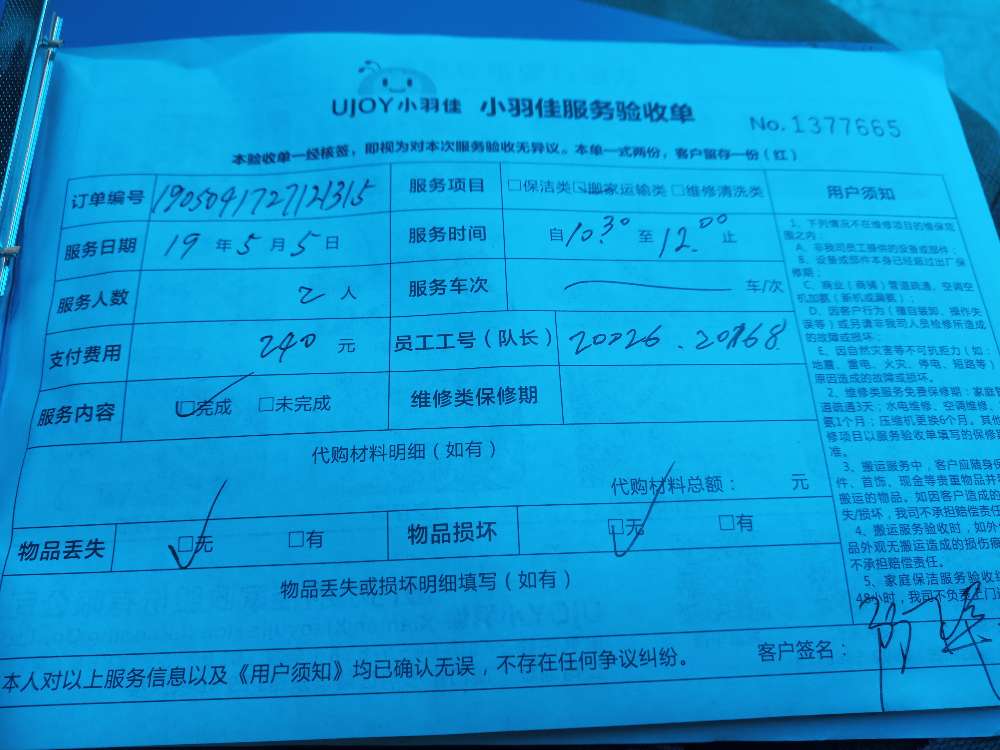 UJOY小羽佳 小羽佳服务验收单
No.1377665
本验收单一经核签，即视为对本次服务验收无异议。本单一式两份，客户留存一份（红）
订单编号 1905041727121315 服务项目 □保洁类□搬家运输类 □维修清洗类
服务日期 19 年 5 月 5 日 服务时间 自 10:30 至 12:00 止
服务人数 2 人 服务车次 车/次
支付费用 240 元 员工工号（队长） 20026 . 20168
服务内容 □完成 □未完成 维修类保修期
代购材料明细（如有）
代购材料总额： 元
物品丢失 □无 □有 物品损坏 □无 □有
物品丢失或损坏明细填写（如有）
本人对以上服务信息以及《用户须知》均已确认无误，不存在任何争议纠纷。 客户签名：
用户须知
1、下列情况不在维修项目的维保范
围之内：
A、非我司员工提供的设备或部件；
B、设备或部件本身已经超过出厂保
修期；
C、商业（商铺）管道疏通、空调空
机加氨（新机或漏氨）；
D、因客户行为（擅自装卸、操作失
误等）或另请非我司人员检修所造成
的故障或损坏；
E、因自然灾害等不可抗拒力（如：
地震、雷电、火灾、停电、短路等）
原因造成的故障或损坏。
2、维修类服务免费保修期：家庭管
道疏通3天；水电维修、空调维修、
氨1个月；压缩机更换6个月。其他
修项目以服务验收单填写的保修期
准。
3、搬运服务中，客户应随身保
件、首饰、现金等贵重物品并
搬运的物品。如因客户造成的
失/损坏，我司不承担赔偿责任
4、搬运服务验收时，如外
品外观无搬运造成的损伤痕
不承担赔偿责任。
5、家庭保洁服务验收
48小时，我司不负责上门